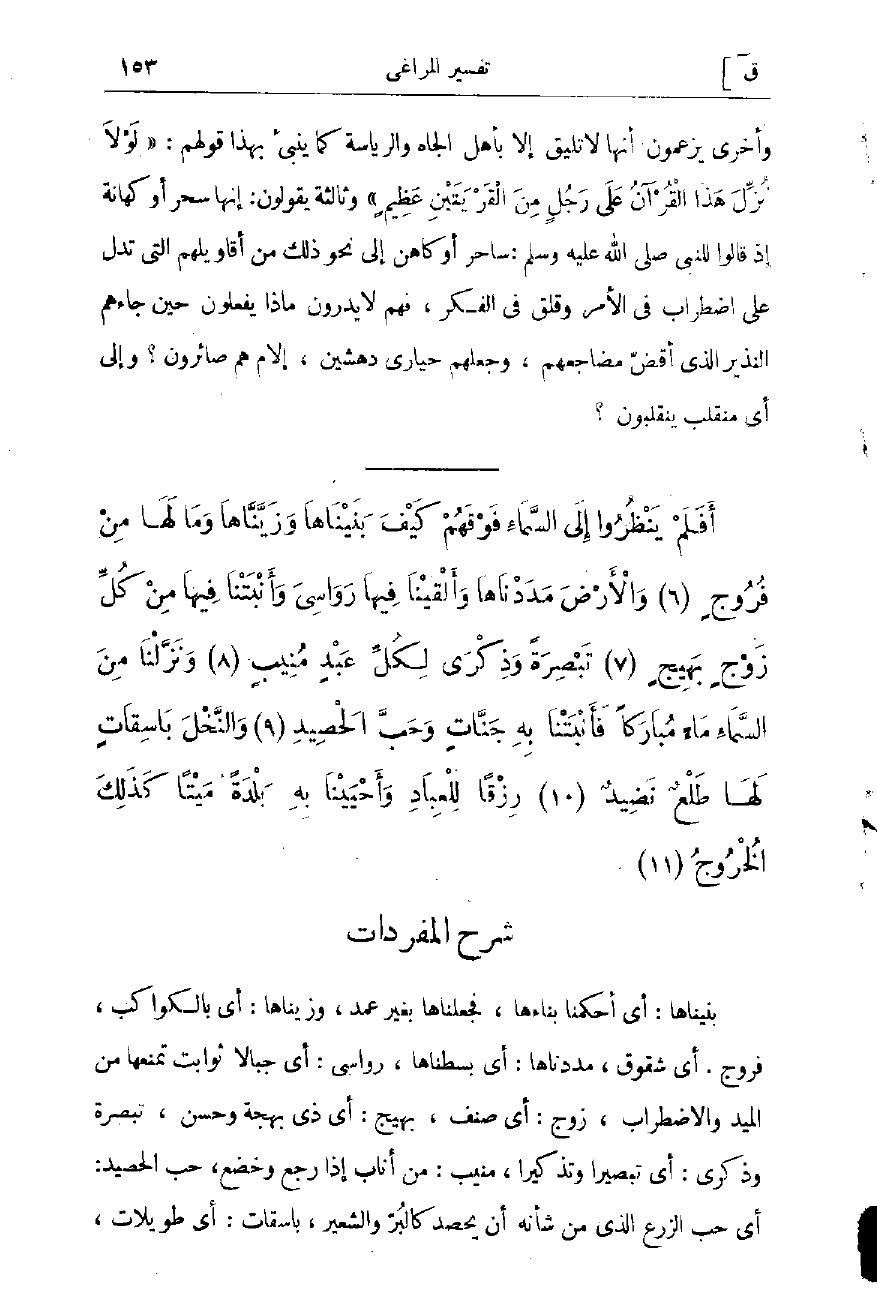 ق~ ] تفسير المراغى ١٥٣
وأخرى يزعمون أنها لاتليق إلا بأهل الجاه والرياسة كما ينبئ بهذا قولهم : « لَوْلاَ
نُزِّلَ هَذَا الْقُرْآنُ عَلَى رَجُلٍ مِنَ الْقَرْيَتَيْنِ عَظِيمٍ » وثالثة يقولون: إنها سحر أو كهانة
إذ قالوا للنبى صلى الله عليه وسلم : ساحر أو كاهن إلى نحو ذلك من أقاويلهم التى تدل
على اضطراب فى الأمر وقلق فى الفكر ، فهم لايدرون ماذا يفعلون حين جاءهم
النذير الذى أقضّ مضاجعهم ، وجعلهم حيارى دهشين ، إلام هم صائرون ؟ وإلى
أى منقلب ينقلبون ؟
أَفَلَمْ يَنْظُرُوا إِلَى السَّمَاءِ فَوْقَهُمْ كَيْفَ بَنَيْنَاهَا وَزَيَّنَّاهَا وَمَا لَهَا مِنْ
فُرُوجٍ (٦) وَالْأَرْضَ مَدَدْنَاهَا وَأَلْقَيْنَا فِيهَا رَوَاسِىَ وَأَنْبَتْنَا فِيهَا مِنْ كُلِّ
زَوْجٍ بَهِيجٍ (٧) تَبْصِرَةً وَذِكْرَى لِكُلِّ عَبْدٍ مُنِيبٍ (٨) وَنَزَّلْنَا مِنَ
السَّمَاءِ مَاءً مُبَارَكاً فَأَنْبَتْنَا بِهِ جَنَّاتٍ وَحَبَّ الْحَصِيدِ (٩) وَالنَّخْلَ بَاسِقَاتٍ
لَهَا طَلْعٌ نَضِيدٌ (١٠) رِزْقًا لِلْعِبَادِ وَأَحْيَيْنَا بِهِ بَلْدَةً مَيْتًا كَذَلِكَ
الْخُرُوجُ (١١)
شرح المفردات
بنيناها : أى أحكمنا بناءها ، فجعلناها بغير عمد ، وزيناها : أى بالكواكب ،
فروج . أى شقوق ، مددناها : أى بسطناها ، رواسى : أى جبالا ثوابت تمنعها من
الميد والاضطراب ، زوج : أى صنف ، بهيج : أى ذى بهجة وحسن ، تبصرة
وذكرى : أى تبصيرا وتذكيرا ، منيب : من أناب إذا رجع وخضع، حب الحصيد:
أى حب الزرع الذى من شأنه أن يحصد كالبُرّ والشعير ، باسقات : أى طويلات ،